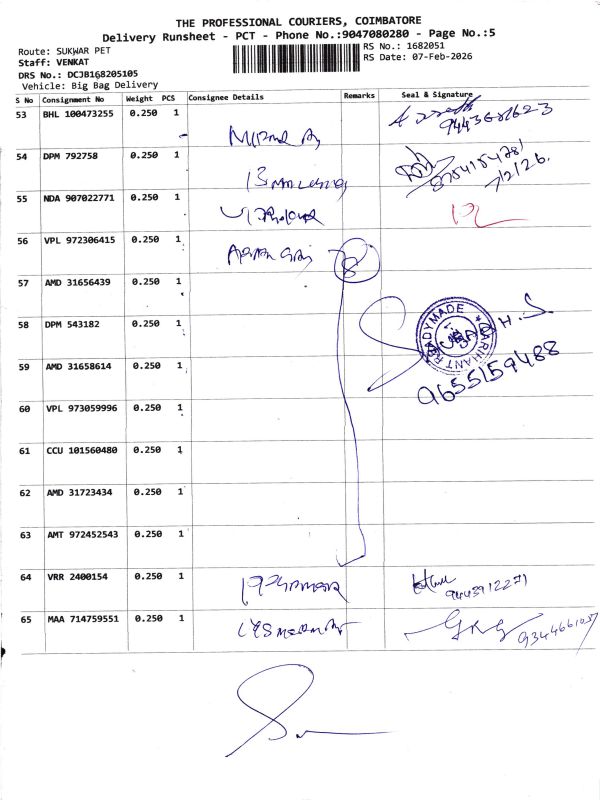 THE PROFESSIONAL COURIERS, COIMBATORE
Delivery Runsheet - PCT - Phone No.:9047080280 - Page No.:5
Route: SUKWAR PET
RS No.: 1682051
Staff: VENKAT
RS Date: 07-Feb-2026
DRS No.: DCJB168205105
Vehicle: Big Bag Delivery
S No Consignment No Weight PCS Consignee Details Remarks Seal & Signature
53 BHL 100473255 0.250 1
54 DPM 792758 0.250 1 8754154781
7/2/26.
55 NDA 907022771 0.250 1
56 VPL 972306415 0.250 1 8
57 AMD 31656439 0.250 1
58 DPM 543182 0.250 1
READYMADE
ARIHANT
9655159488
59 AMD 31658614 0.250 1
60 VPL 973059996 0.250 1
61 CCU 101560480 0.250 1
62 AMD 31723434 0.250 1
63 AMT 972452543 0.250 1
64 VRR 2400154 0.250 1 9443912271
65 MAA 714759551 0.250 1